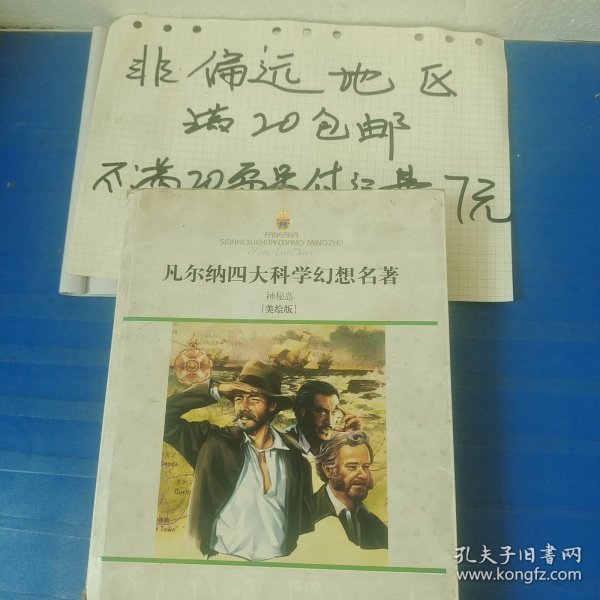 非偏远地区
满20包邮
不满20需另付运费7元
FANERNA
SIDAKEXUEHUANXIANG MINGZHU
Mei Hui Ban
凡尔纳四大科学幻想名著
神秘岛
[美绘版]
孔夫子旧书网
www.kongfz.com